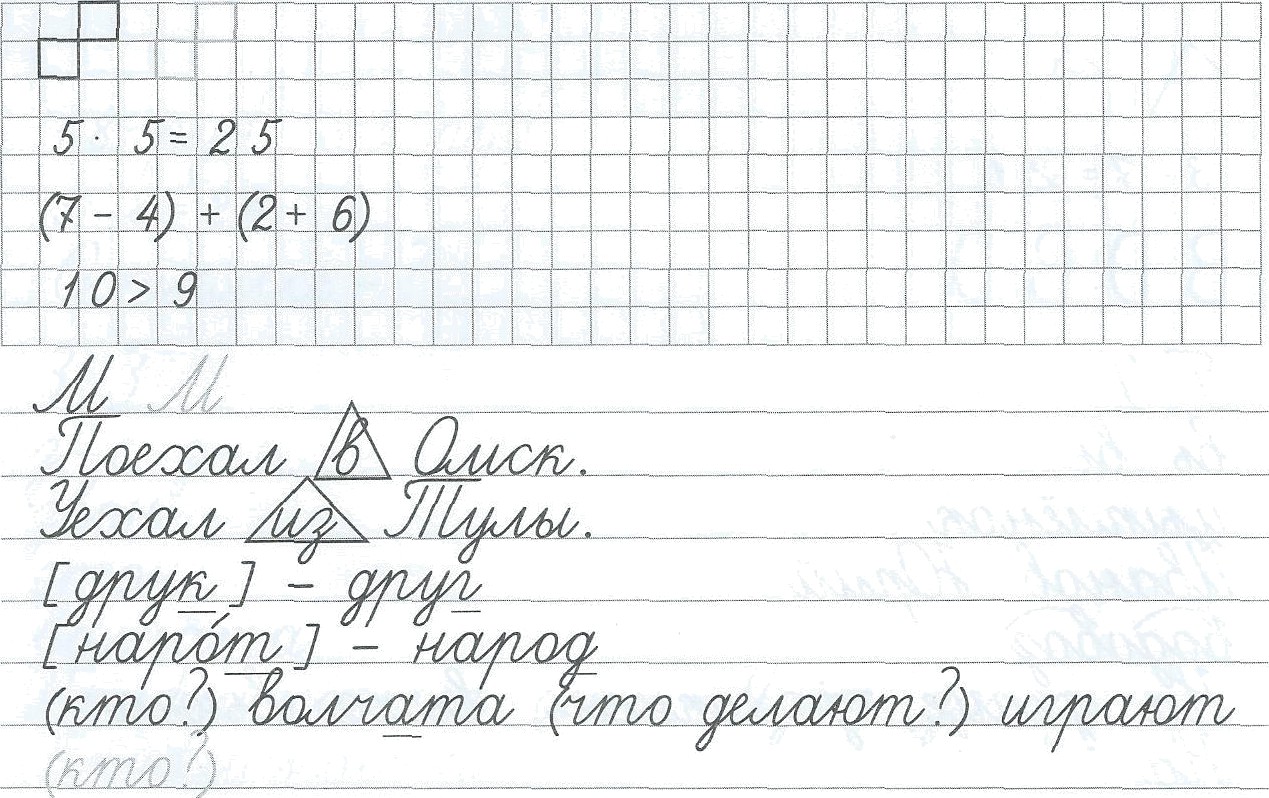 5 · 5 = 25
(7 - 4) + (2 + 6)
10 > 9
М М
Поехал в Омск.
Уехал из Тулы.
[друк] - друг
[наро́т] - народ
(кто?) волчата (что делают?) играют
(кто?)